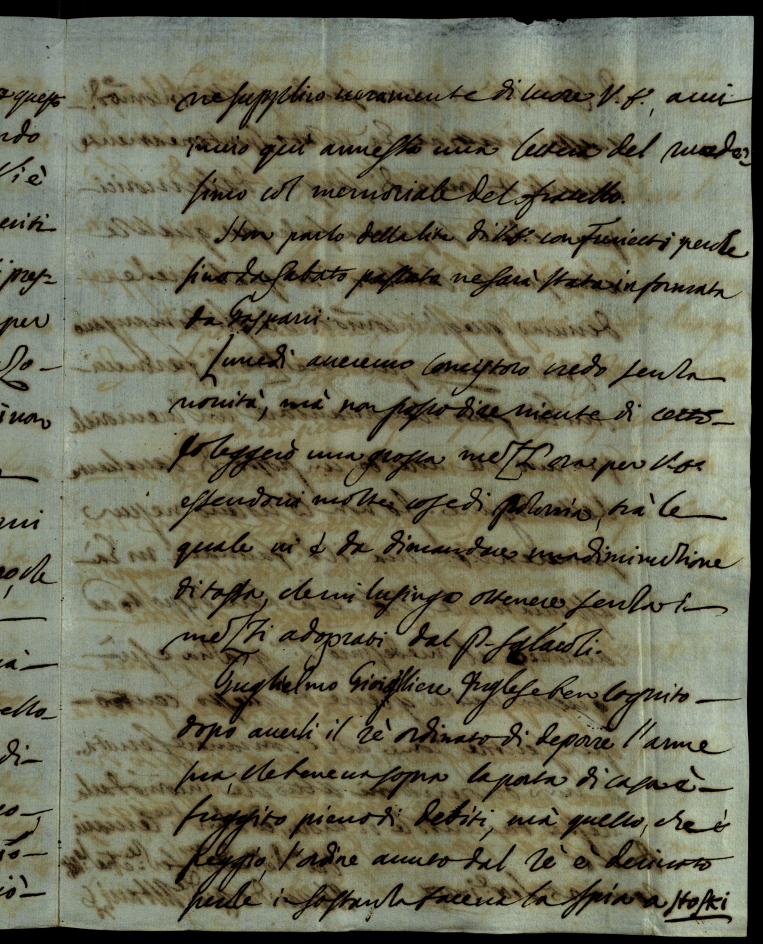 ne supplico veramente di cuore V. S., a cui
invio qui annessa una lettera del mede=
simo col memoriale del fratello.
Non parlo della lite di V. S. con Furietti perche
sino da Sabato passata ne sarà stata informata
da Gasparri.
Lunedì averemo Concistoro credo senza
novità, mà non posso dire niente di certo
Io leggerò una grossa mezz'ora per V. S.
essendovi molte cose di polonia, trà le
quale vi è da dimandare una diminuzione
di tassa, che mi lusingo ottenere senza i
mezzi adoprati dal P.
Guglielmo Gioiglliere Inglese ben cognito
dopo averli il rè ordinato di deporre l'arme
sua, che teneva sopra la porta di casa è
fuggito pieno di debiti, mà quello, che è
peggio, l'ordine avuto dal rè è derivato
perche in sostanza faceva la spia a Stoski